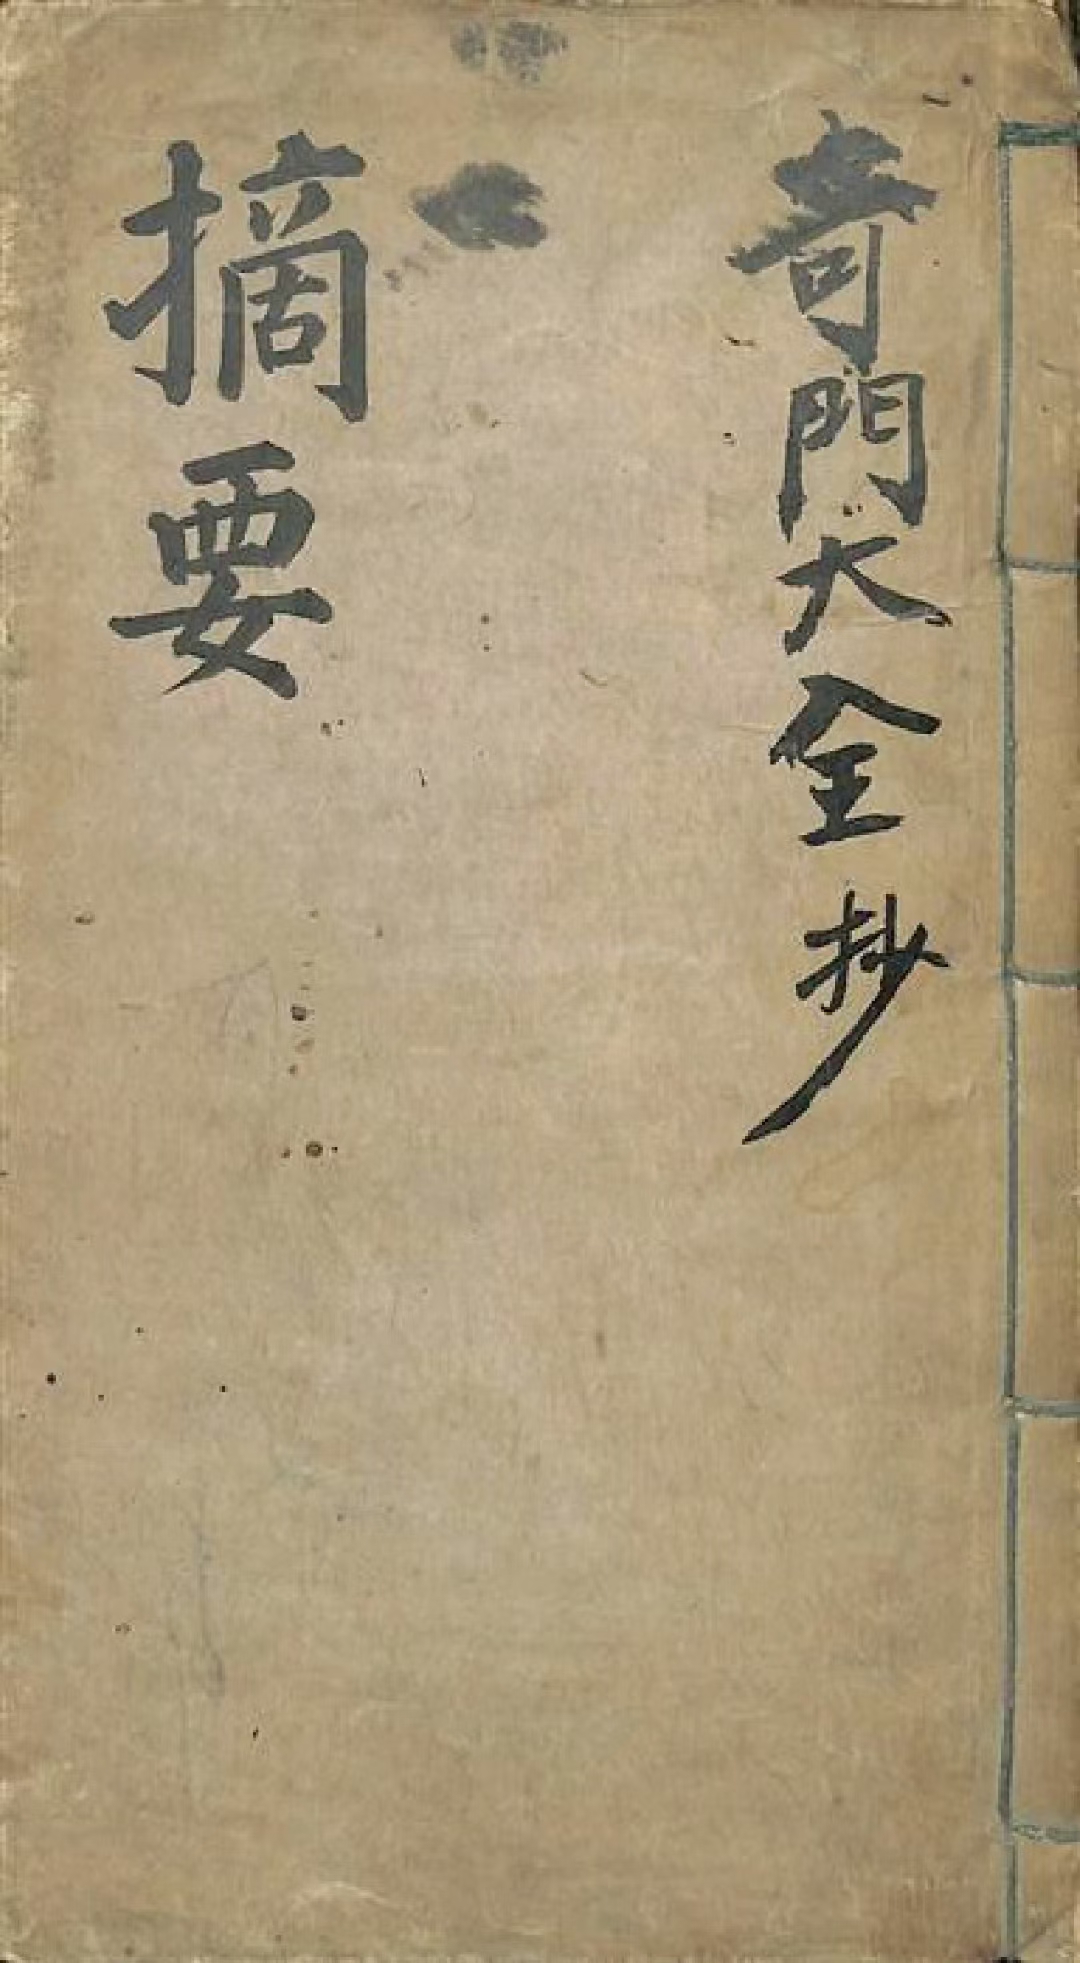 奇門大全抄
摘要